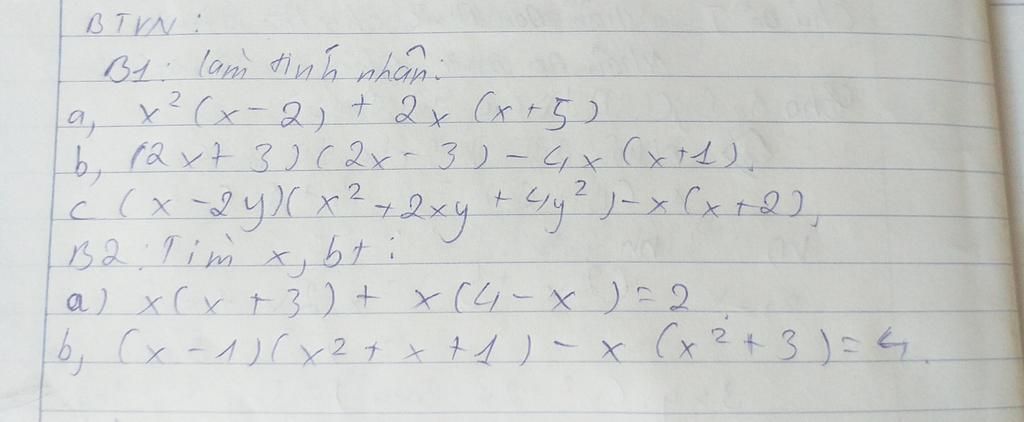 BTVN:
B1: làm tính nhân:
a, x²(x-2) + 2x (x+5)
b, (2x+3)(2x-3)-4x(x+1).
c (x-2y)(x²+2xy+4y²)-x(x+2),
B2: Tìm x, bt:
a) x(x+3)+ x(4-x)=2
b, (x-1)(x²+x+1)-x (x²+3)=4.